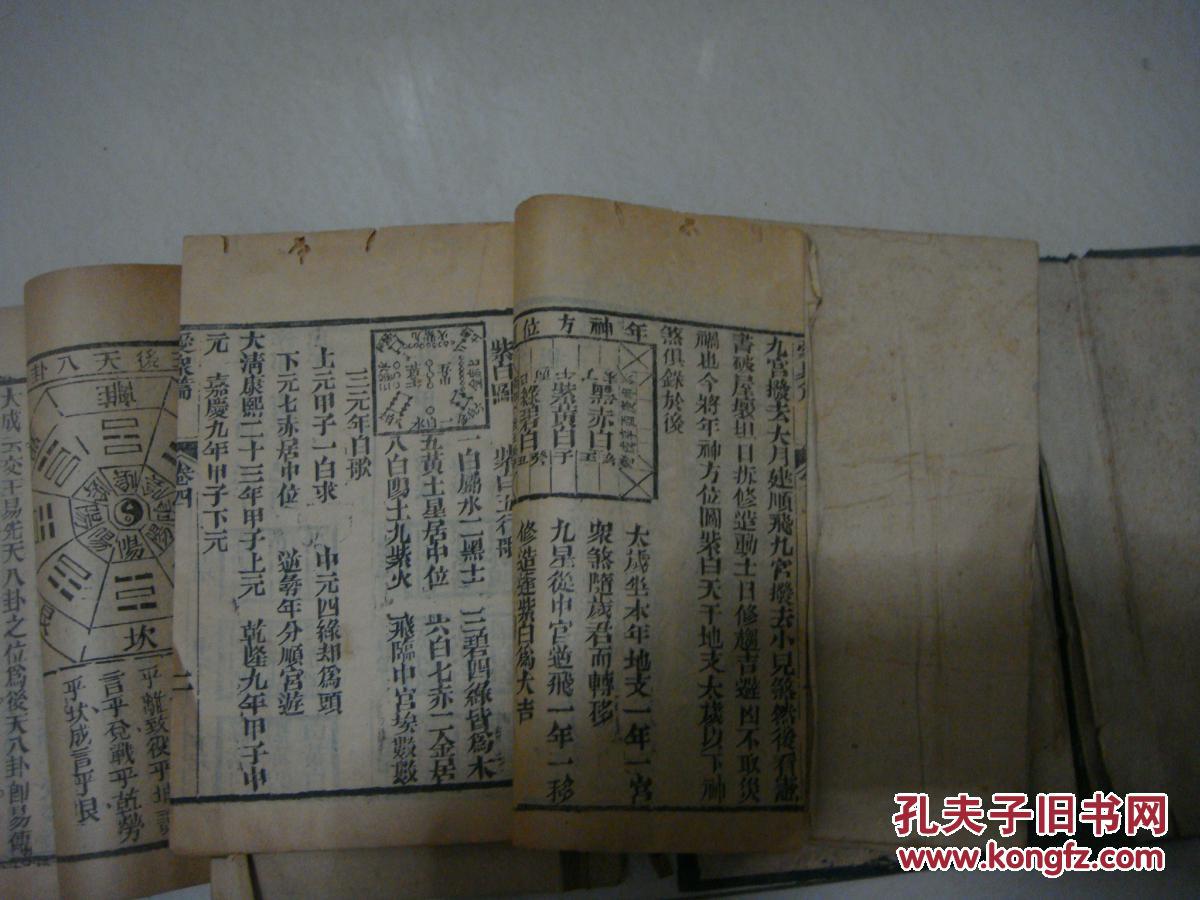 九宮撥去大月建順飛九宮撥去小兒煞然後看憲
書破屋製坦日拆修造動土日修趨吉避凶不取災
禍也今將年神方位圖紫白天干地支太歲以下神
煞俱錄於後
年神方位
黑赤白
紫黃白
綠碧白
太歲坐本年地支一年一宮
衆煞隨歲君而轉移
九星從中宮遁飛一年一移
修造逢紫白爲大吉
紫白圖
紫白五行歌
一白屬水二黑土
三碧四綠皆爲木
五黃土星居中位
六白七赤二金居
八白四土九紫火
飛臨中宮埃數數
三元年白歌
上元甲子一白求
中元四綠却爲頭
下元七赤居中位
逆尋年分順宮遊
大清康熙二十三年甲子上元
乾隆九年甲子中
元
嘉慶九年甲子下元
卷四
後天八卦
離
坎
陽
乎離致役乎坤
言乎兌戰乎乾勞
乎坎成言乎艮
大成云文王易先天八卦之位爲後天八卦卽易傳
孔夫子旧书网
www.kongfz.com